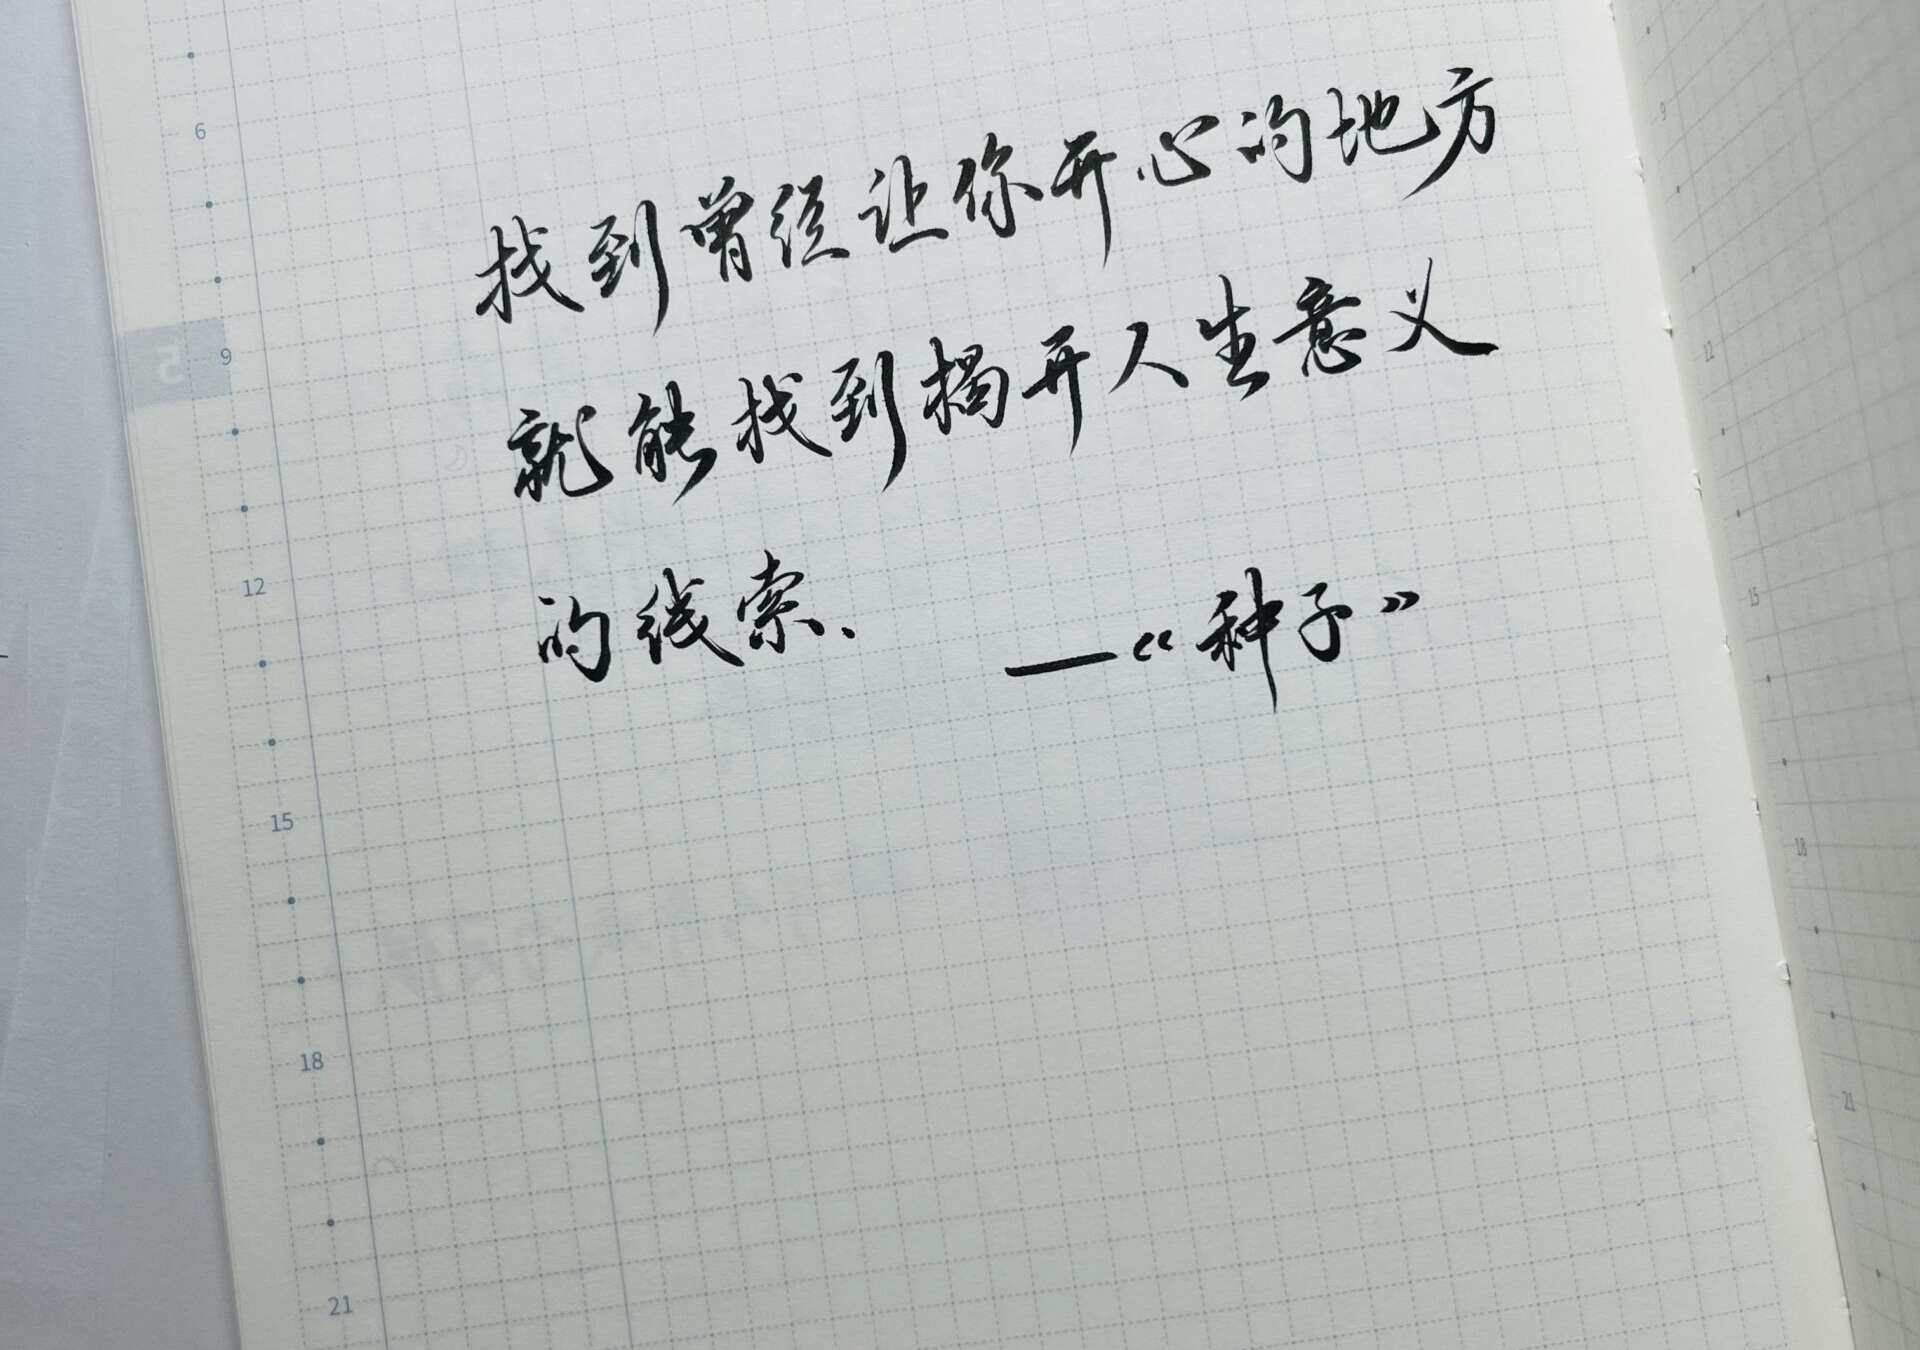 6
找到曾经让你开心的地方
9
就能找到揭开人生意义
12
的线索、 —《种子》
15
18
21
9
12
15
18
21